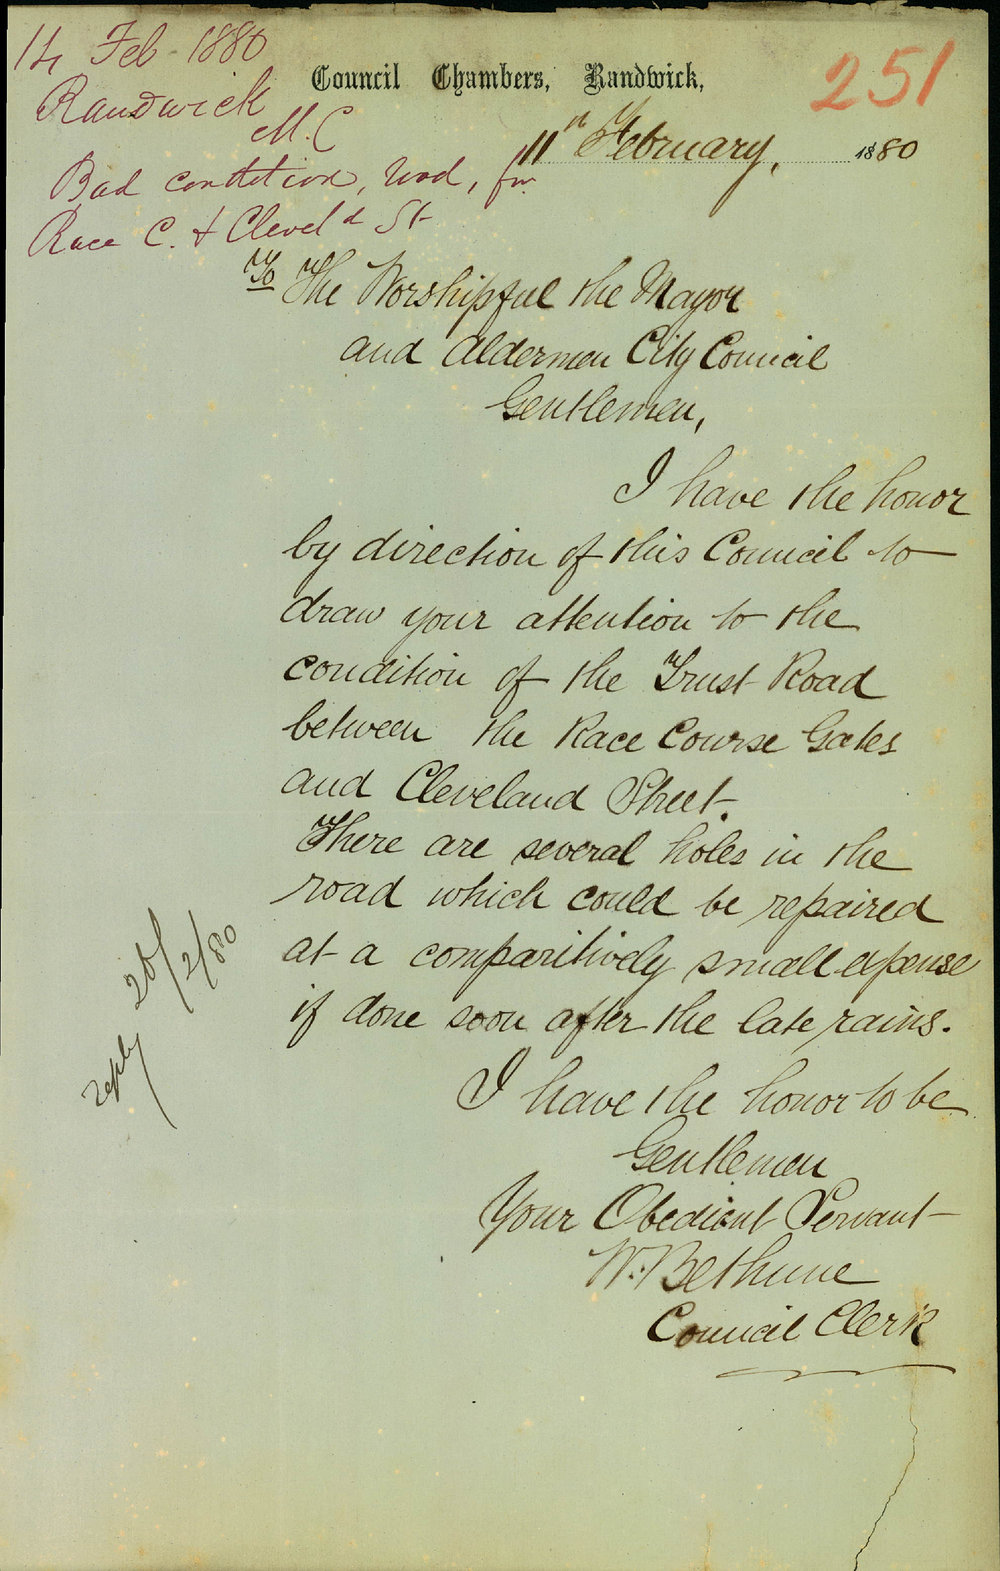 14 Feb 1880
Randwick
M. C
Bad condition, road, fm
Race C. & Clevel^d St
Council Chambers, Randwick,
251
11th February, 1880
To The Worshipful the Mayor
and Aldermen City Council
Gentlemen,
I have the honor
by direction of this Council to
draw your attention to the
condition of the Trust Road
between the Race Course Gates
and Cleveland Street.
There are several holes in the
road which could be repaired
at a comparitively small expense
if done soon after the late rains.
I have the honor to be
Gentlemen
Your Obedient Servant
W. Bethune
Council Clerk
reply 20/2/80